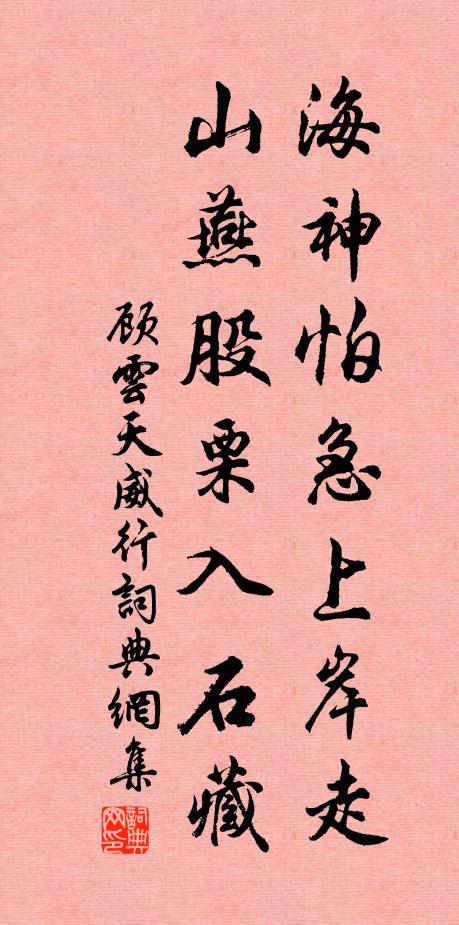 海神怕急上岸走
山燕股栗入石藏
顾雲天威行詞典網集
詞典网印